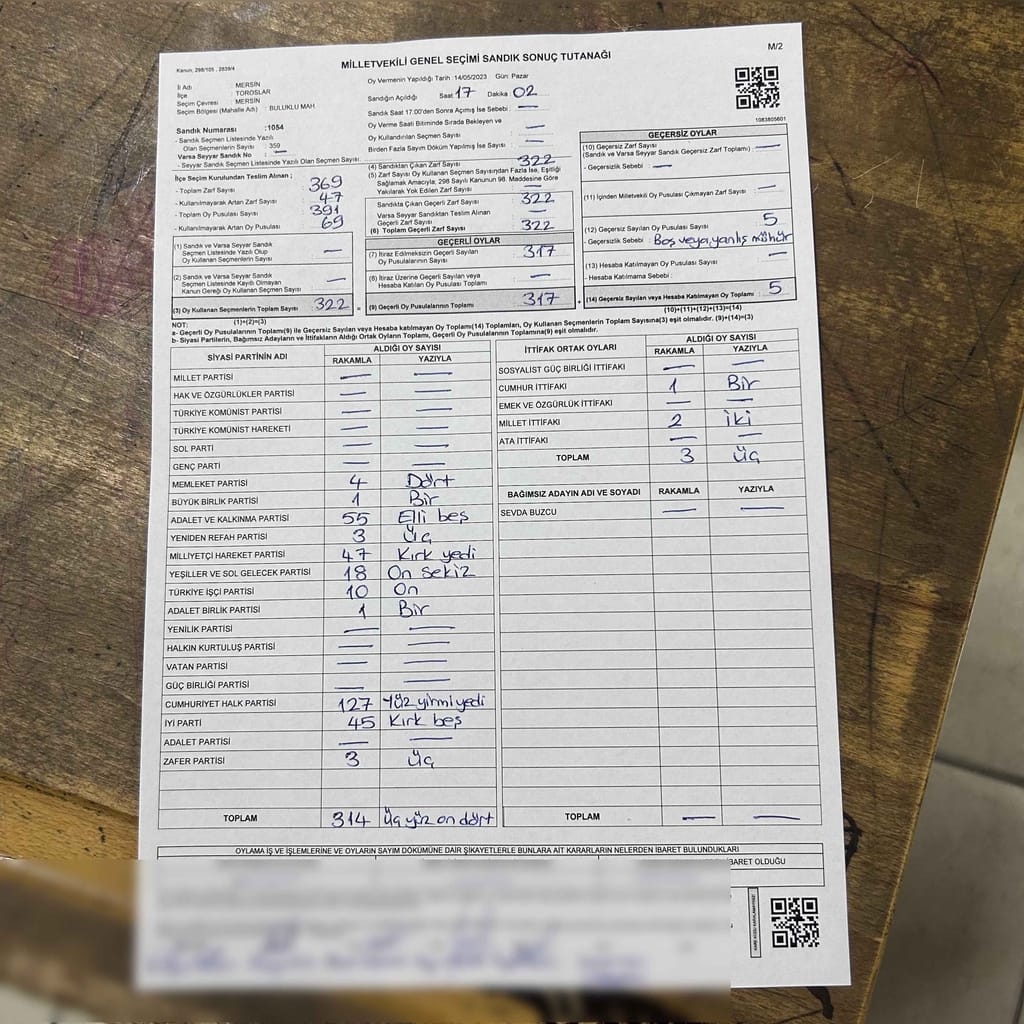 Kanun, 298/105 , 2839/4
MİLLETVEKİLİ GENEL SEÇİMİ SANDIK SONUÇ TUTANAĞI
M/2
İl Adı : MERSİN
İlçe : TOROSLAR
Seçim Çevresi : MERSİN
Seçim Bölgesi (Mahalle Adı) : BULUKLU MAH.
Sandık Numarası :1054
- Sandık Seçmen Listesinde Yazılı
Olan Seçmenlerin Sayısı : 359
Varsa Seyyar Sandık No : —
- Seyyar Sandık Seçmen Listesinde Yazılı Olan Seçmen Sayısı:
Oy Vermenin Yapıldığı Tarih :14/05/2023 Gün: Pazar
Sandığın Açıldığı Saat 17 Dakika 02
Sandık Saat 17.00'den Sonra Açımış İse Sebebi : —
Oy Verme Saati Bitiminde Sırada Bekleyen ve
Oy Kullandırılan Seçmen Sayısı : —
Birden Fazla Sayım Döküm Yapılmış İse Sayısı : —
1083805601
İlçe Seçim Kurulundan Teslim Alınan ;
- Toplam Zarf Sayısı : 369
- Kullanılmayarak Artan Zarf Sayısı : 47
- Toplam Oy Pusulası Sayısı : 391
- Kullanılmayarak Artan Oy Pusulası : 69
(1) Sandık ve Varsa Seyyar Sandık
Seçmen Listesinde Yazılı Olup
Oy Kullanan Seçmenlerin Sayısı —
(2) Sandık ve Varsa Seyyar Sandık
Seçmen Listesinde Kayıtlı Olmayan
Kanun Gereği Oy Kullanan Seçmen Sayısı —
(3) Oy Kullanan Seçmenlerin Toplam Sayısı 322 =
(1)+(2)=(3)
(4) Sandıktan Çıkan Zarf Sayısı : 322
(5) Zarf Sayısı Oy Kullanan Seçmen Sayısından Fazla İse, Eşitliği
Sağlamak Amacıyla; 298 Sayılı Kanunun 98. Maddesine Göre
Yakılarak Yok Edilen Zarf Sayısı : —
Sandıkta Çıkan Geçerli Zarf Sayısı : 322
Varsa Seyyar Sandıktan Teslim Alınan
Geçerli Zarf Sayısı —
(6) Toplam Geçerli Zarf Sayısı : 322
GEÇERLİ OYLAR
(7) İtiraz Edilmeksizin Geçerli Sayılan
Oy Pusulalarının Sayısı 317
(8) İtiraz Üzerine Geçerli Sayılan veya
Hesaba Katılan Oy Pusulası Toplamı —
(9) Gelerli Oy Pusulalarının Toplamı 317 +
GEÇERSİZ OYLAR
(10) Geçersiz Zarf Sayısı —
(Sandık ve Varsa Seyyar Sandık Geçersiz Zarf Toplamı) :
- Geçersizlik Sebebi : —
(11) İçinden Milletvekili Oy Pusulası Çıkmayan Zarf Sayısı : —
(12) Geçersiz Sayılan Oy Pusulası Sayısı : 5
- Geçersizlik Sebebi : Boş veya yanlış mühür
(13) Hesaba Katılmayan Oy Pusulası Sayısı : —
- Hesaba Katılmama Sebebi :
(14) Geçersiz Sayılan veya Hesaba Katılmayan Oy Toplamı : 5
(10)+(11)+(12)+(13)=(14)
NOT:
a- Geçerli Oy Pusulalarının Toplamı(9) ile Geçersiz Sayılan veya Hesaba katılmayan Oy Toplamı(14) Toplamları, Oy Kullanan Seçmenlerin Toplam Sayısına(3) eşit olmalıdır. (9)+(14)=(3)
b- Siyasi Partilerin, Bağımsız Adayların ve İttifakların Aldığı Ortak Oyların Toplamı, Geçerli Oy Pusulalarının Toplamına(9) eşit olmalıdır.
SİYASİ PARTİNİN ADI ALDIĞI OY SAYISI
RAKAMLA YAZIYLA
MİLLET PARTİSİ — —
HAK VE ÖZGÜRLÜKLER PARTİSİ — —
TÜRKİYE KOMÜNİST PARTİSİ — —
TÜRKİYE KOMÜNİST HAREKETİ — —
SOL PARTİ — —
GENÇ PARTİ — —
MEMLEKET PARTİSİ 4 Dört
BÜYÜK BİRLİK PARTİSİ 1 Bir
ADALET VE KALKINMA PARTİSİ 55 Elli beş
YENİDEN REFAH PARTİSİ 3 Üç
MİLLİYETÇİ HAREKET PARTİSİ 47 Kırk yedi
YEŞİLLER VE SOL GELECEK PARTİSİ 18 On sekiz
TÜRKİYE İŞÇİ PARTİSİ 10 On
ADALET BİRLİK PARTİSİ 1 Bir
YENİLİK PARTİSİ — —
HALKIN KURTULUŞ PARTİSİ — —
VATAN PARTİSİ — —
GÜÇ BİRLİĞİ PARTİSİ — —
CUMHURİYET HALK PARTİSİ 127 Yüz yirmi yedi
İYİ PARTİ 45 Kırk beş
ADALET PARTİSİ — —
ZAFER PARTİSİ 3 Üç
TOPLAM 314 Üç yüz on dört
İTTİFAK ORTAK OYLARI ALDIĞI OY SAYISI
RAKAMLA YAZIYLA
SOSYALİST GÜÇ BİRLİĞİ İTTİFAKI — —
CUMHUR İTTİFAKI 1 Bir
EMEK VE ÖZGÜRLÜK İTTİFAKI — —
MİLLET İTTİFAKI 2 İki
ATA İTTİFAKI — —
TOPLAM 3 Üç
BAĞIMSIZ ADAYIN ADI VE SOYADI RAKAMLA YAZIYLA
SEVDA BUZCU — —
TOPLAM — —
OYLAMA İŞ VE İŞLEMLERİNE VE OYLARIN SAYIM DÖKÜMÜNE DAİR ŞİKAYETLERLE BUNLARA AİT KARARLARIN NELERDEN İBARET BULUNDUKLARI
İBARET OLDUĞU